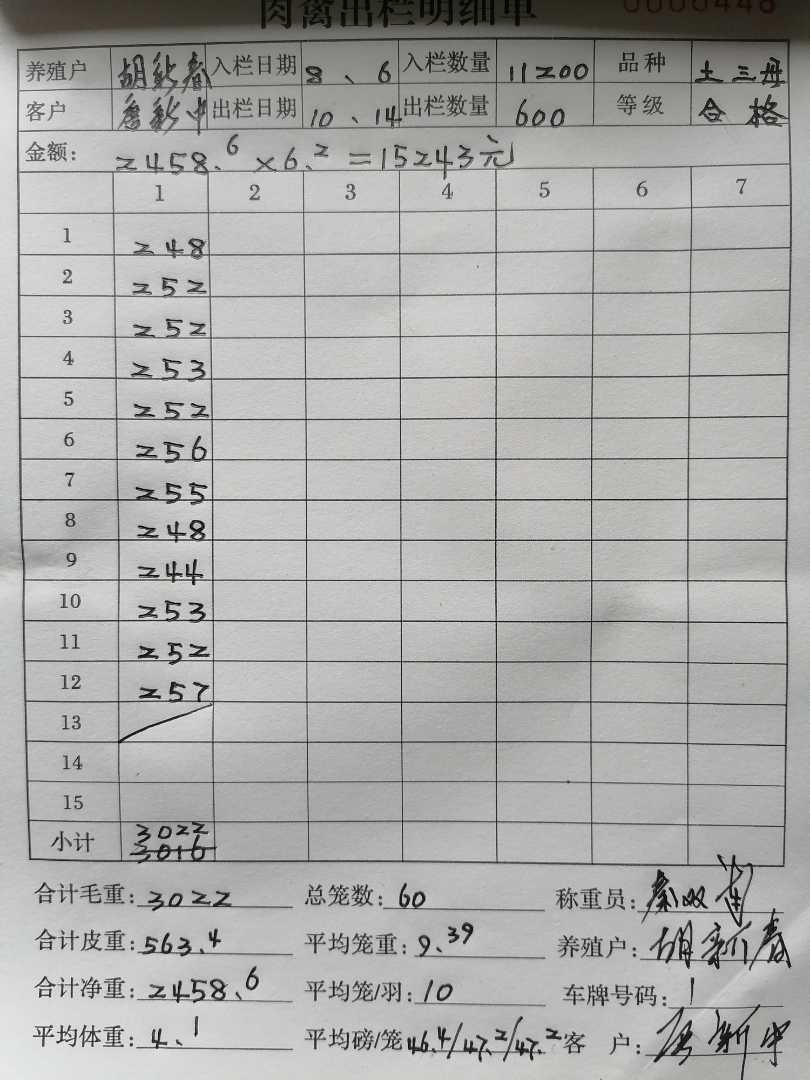 肉禽出栏明细单 0000448
养殖户 胡新春 入栏日期 8、6 入栏数量 11200 品种 土三丹
客户 詹新中 出栏日期 10、14 出栏数量 600 等级 合格
金额: 2458.6×6.2=15243元
1 2 3 4 5 6 7
1 248
2 252
3 252
4 253
5 252
6 256
7 255
8 248
9 244
10 253
11 252
12 257
13
14
15
小计 3022 3016
合计毛重: 3022 总笼数: 60 称重员: 秦双
合计皮重: 563.4 平均笼重: 9.39 养殖户: 胡新春
合计净重: 2458.6 平均笼/羽: 10 车牌号码: 1
平均体重: 4.1 平均磅/笼 46.4/47.2/47.2 客 户: 新中